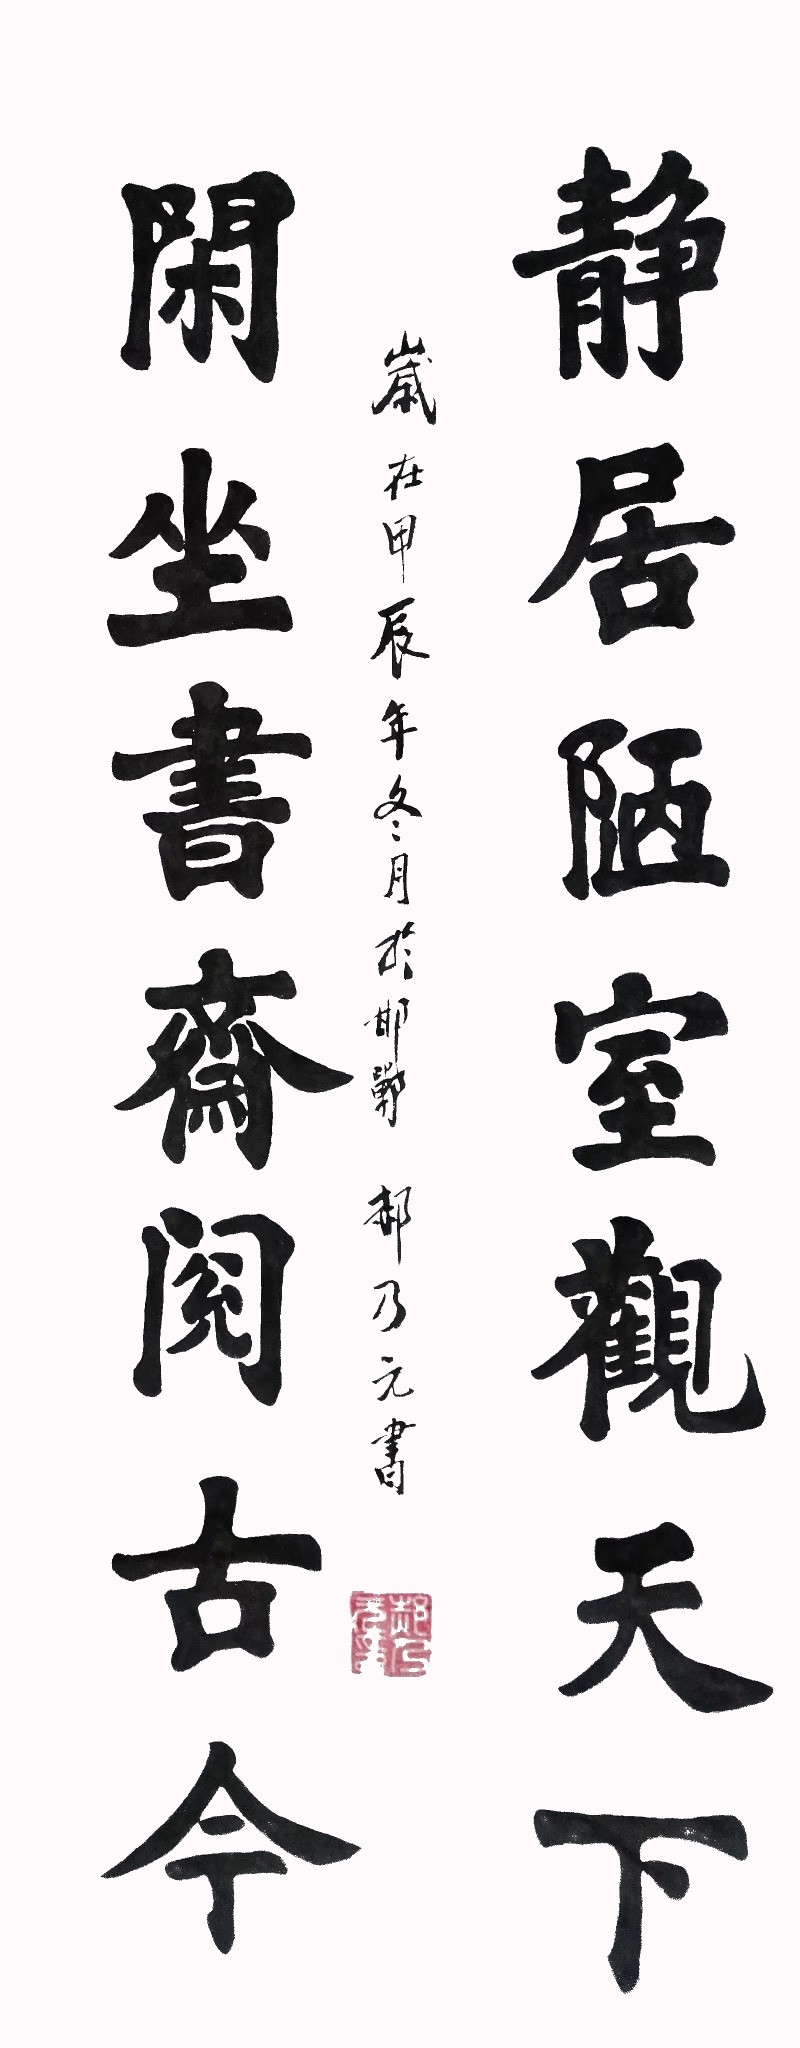 静居陋室觀天下
歲在甲辰年冬月於邯鄲 郝乃元書
閑坐書齋閱古今